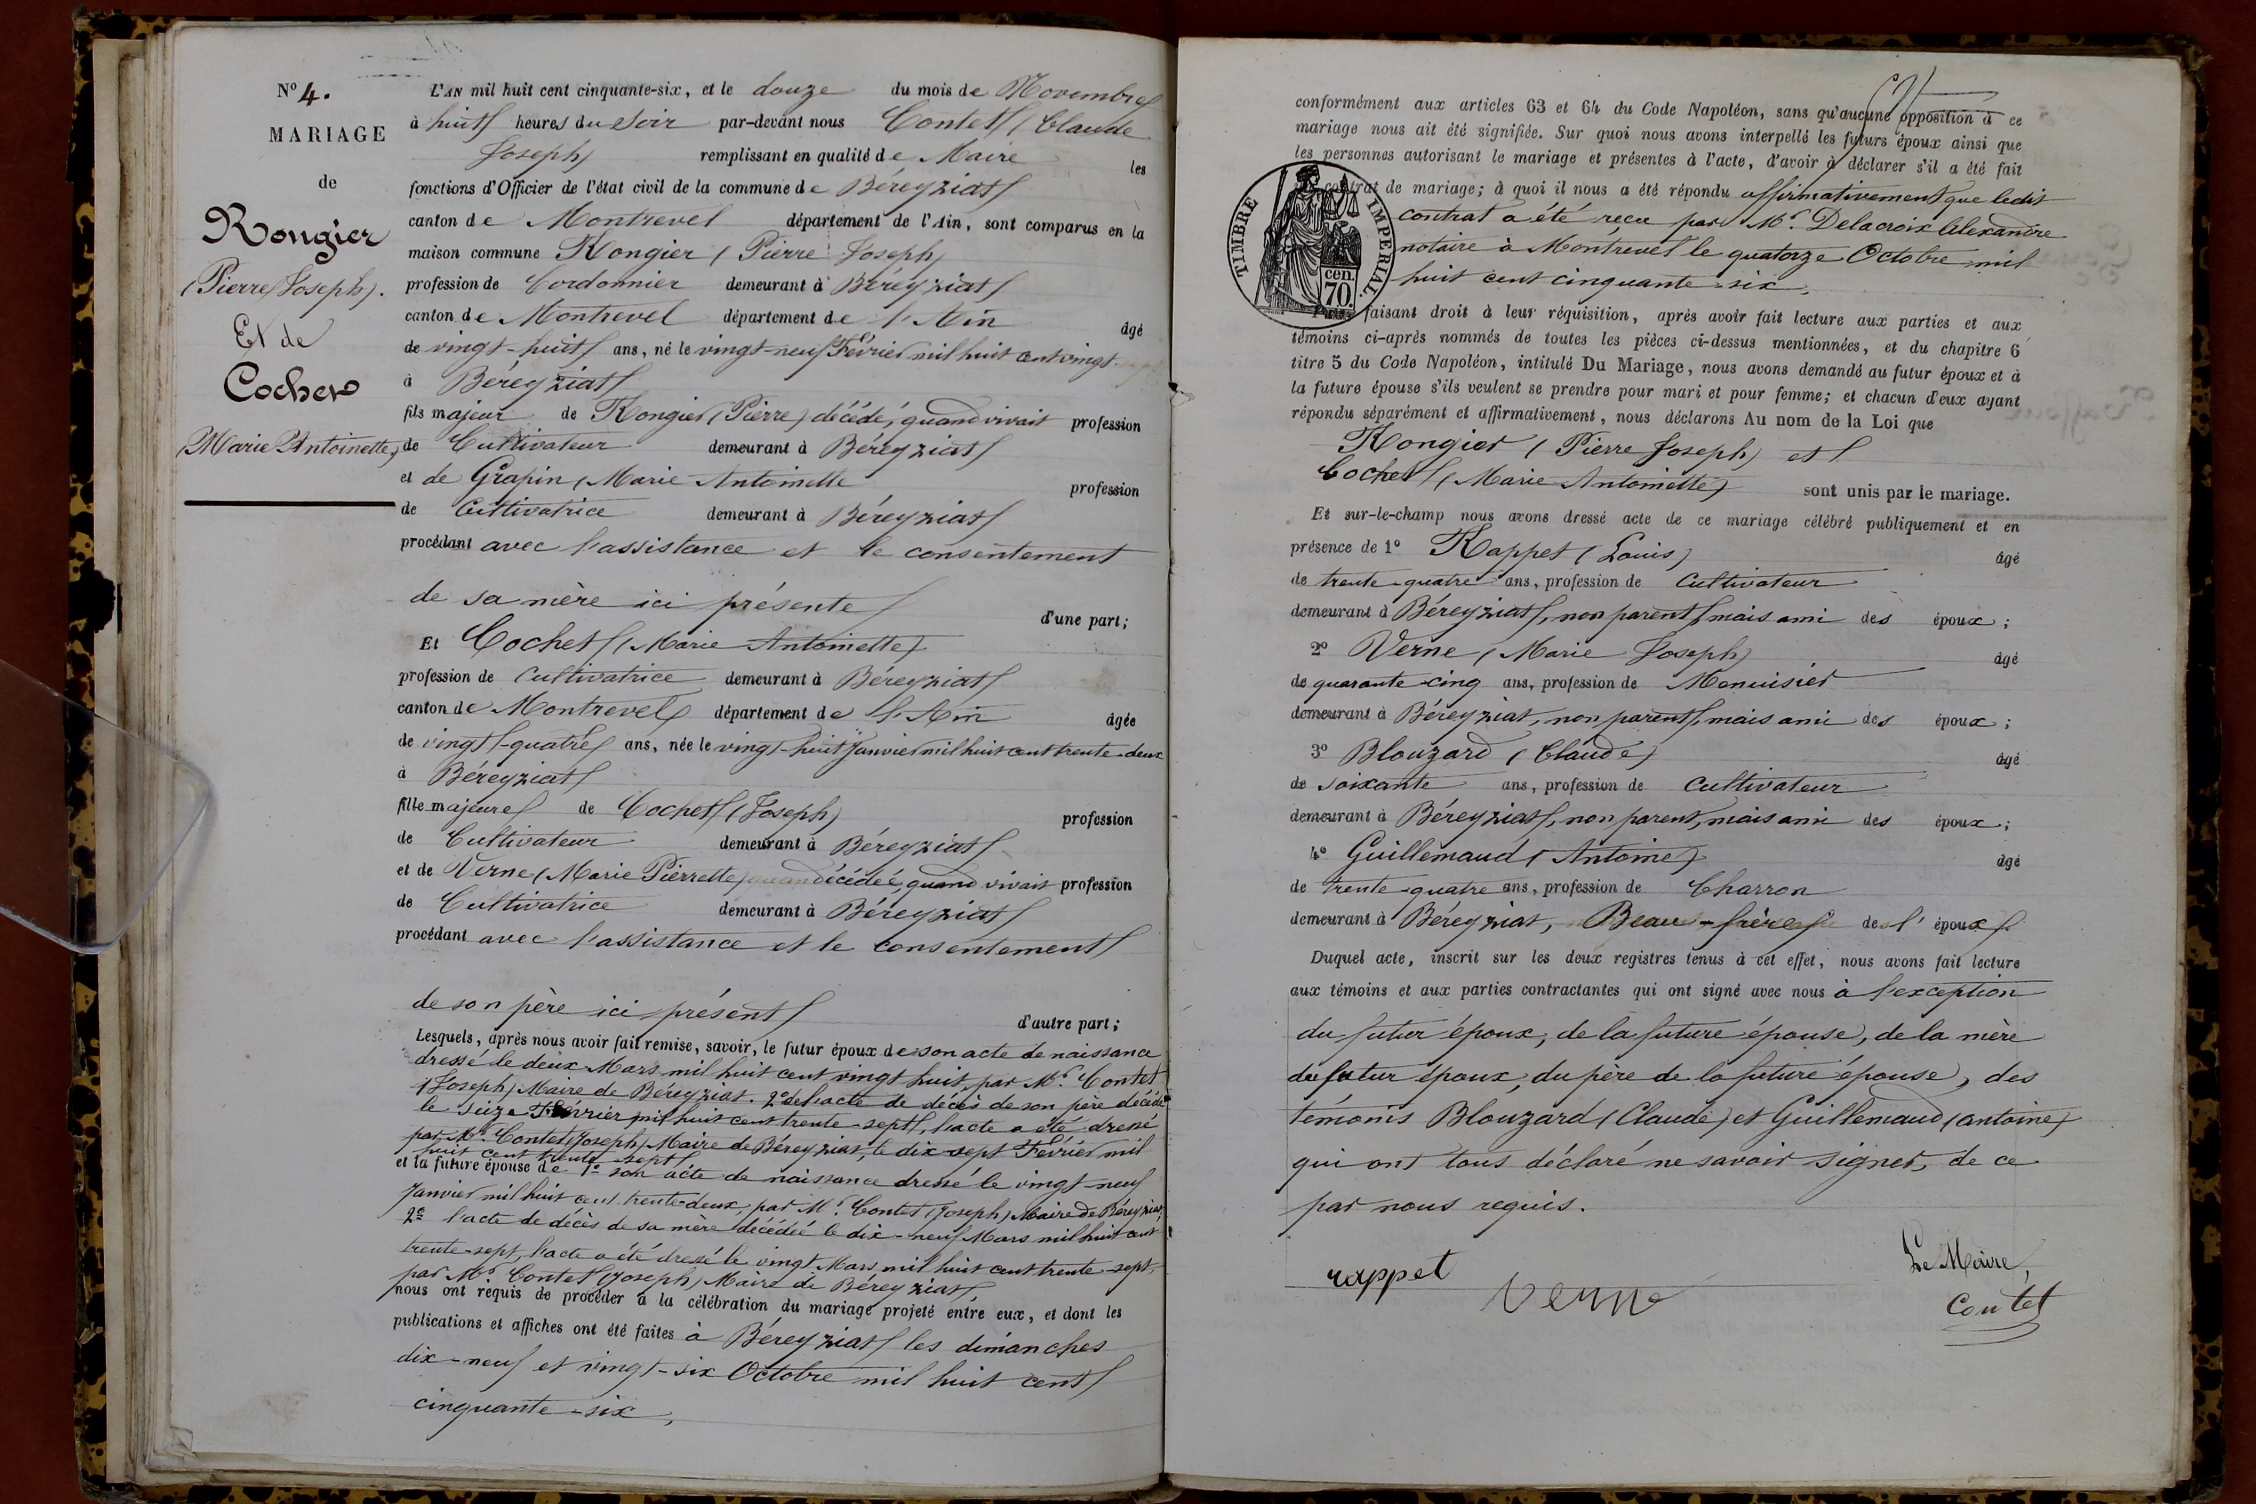 N° 4.
MARIAGE
de
Rongier
(Pierre Joseph).
Et de
Cochet
(Marie Antoinette)
L'AN mil huit cent cinquante-six, et le douze du mois de Novembre
à huit heures du soir par-devant nous Contet (Claude
Joseph) remplissant en qualité de Maire les
fonctions d'Officier de l'état civil de la commune de Béreyziat
canton de Montrevel département de l'Ain, sont comparus en la
maison commune Rongier (Pierre Joseph)
profession de Cordonnier demeurant à Béréyziat
canton de Montrevel département de l'Ain âgé
de vingt-huit ans, né le vingt-neuf Février mil huit cent vingt
à Béreyziat
fils majeur de Rongier (Pierre) décédé, quand vivait profession
de Cultivateur demeurant à Béréyziat
et de Grapin (Marie Antoinette profession
de Cultivatrice demeurant à Béreyziat
procédant avec l'assistance et le consentement
de sa mère ici présente d'une part;
Et Cochet (Marie Antoinette)
profession de Cultivatrice demeurant à Béreyziat
canton de Montrevel département de l'Ain âgée
de vingt-quatre ans, née le vingt-huit Janvier mil huit cent trente-deux
à Béreyziat
fille majeure de Cochet (Joseph) profession
de Cultivateur demeurant à Béreyziat
et de Verne (Marie Pierrette) décédée, quand vivait profession
de Cultivatrice demeurant à Béreyziat
procédant avec l'assistance et le consentement
de son père ici présent d'autre part;
Lesquels, après nous avoir fait remise, savoir, le futur époux de son acte de naissance
dressé le deux Mars mil huit cent vingt huit, par Mr. Contet
(Joseph) Maire de Béreyziat. 2° de l'acte de décès de son père décédé
le seize Février mil huit cent trente-sept, l'acte a été dressé
par Mr. Contet (Joseph) Maire de Béreyziat, le dix-sept Février mil
huit cent trente-sept
et la future épouse de 1° son acte de naissance dressé le vingt-neuf
Janvier mil huit cent trente-deux, par Mr. Contet (Joseph) Maire de Béreyziat,
2° l'acte de décès de sa mère décédée le dix-neuf Mars mil huit cent
trente-sept, l'acte a été dressé le vingt Mars mil huit cent trente-sept,
par Mr. Contet (Joseph) Maire de Béreyziat,
nous ont requis de procéder à la célébration du mariage projeté entre eux, et dont les
publications et affiches ont été faites à Béreyziat les dimanches
dix-neuf et vingt-six Octobre mil huit cent
cinquante-six,
conformément aux articles 63 et 64 du Code Napoléon, sans qu'aucune opposition à ce
mariage nous ait été signifiée. Sur quoi nous avons interpellé les futurs époux ainsi que
les personnes autorisant le mariage et présentes à l'acte, d'avoir à déclarer s'il a été fait
contrat de mariage; à quoi il nous a été répondu affirmativement que ledit
contrat a été reçu par Mr. Delacroix Alexandre
notaire à Montrevel le quatorze Octobre mil
huit cent cinquante-six,
TIMBRE IMPERIAL.
cen.
70.
faisant droit à leur réquisition, après avoir fait lecture aux parties et aux
témoins ci-après nommés de toutes les pièces ci-dessus mentionnées, et du chapitre 6
titre 5 du Code Napoléon, intitulé Du Mariage, nous avons demandé au futur époux et à
la future épouse s'ils veulent se prendre pour mari et pour femme; et chacun d'eux ayant
répondu séparément et affirmativement, nous déclarons Au nom de la Loi que
Rongier (Pierre Joseph) et
Cochet (Marie Antoinette) sont unis par le mariage.
Et sur-le-champ nous avons dressé acte de ce mariage célébré publiquement et en
présence de 1° Rappet (Louis) âgé
de trente-quatre ans, profession de Cultivateur
demeurant à Béreyziat, non parent, mais ami des époux;
2° Verne (Marie Joseph) âgé
de quarante-cinq ans, profession de Menuisier
demeurant à Béreyziat, non parent, mais ami des époux;
3° Blouzard (Claude) âgé
de soixante ans, profession de Cultivateur
demeurant à Béreyziat, non parent, mais ami des époux;
4° Guillemaud (Antoine) âgé
de trente-quatre ans, profession de Charron
demeurant à Béreyziat, Beau-frère de l'époux
Duquel acte, inscrit sur les deux registres tenus à cet effet, nous avons fait lecture
aux témoins et aux parties contractantes qui ont signé avec nous à l'exception
du futur époux, de la future épouse, de la mère
du futur époux, du père de la future épouse, des
témoins Blouzard (Claude) et Guillemaud (antoine)
qui ont tous déclaré ne savoir signer, de ce
par nous requis.
rappet
verne
Le Maire,
Contet